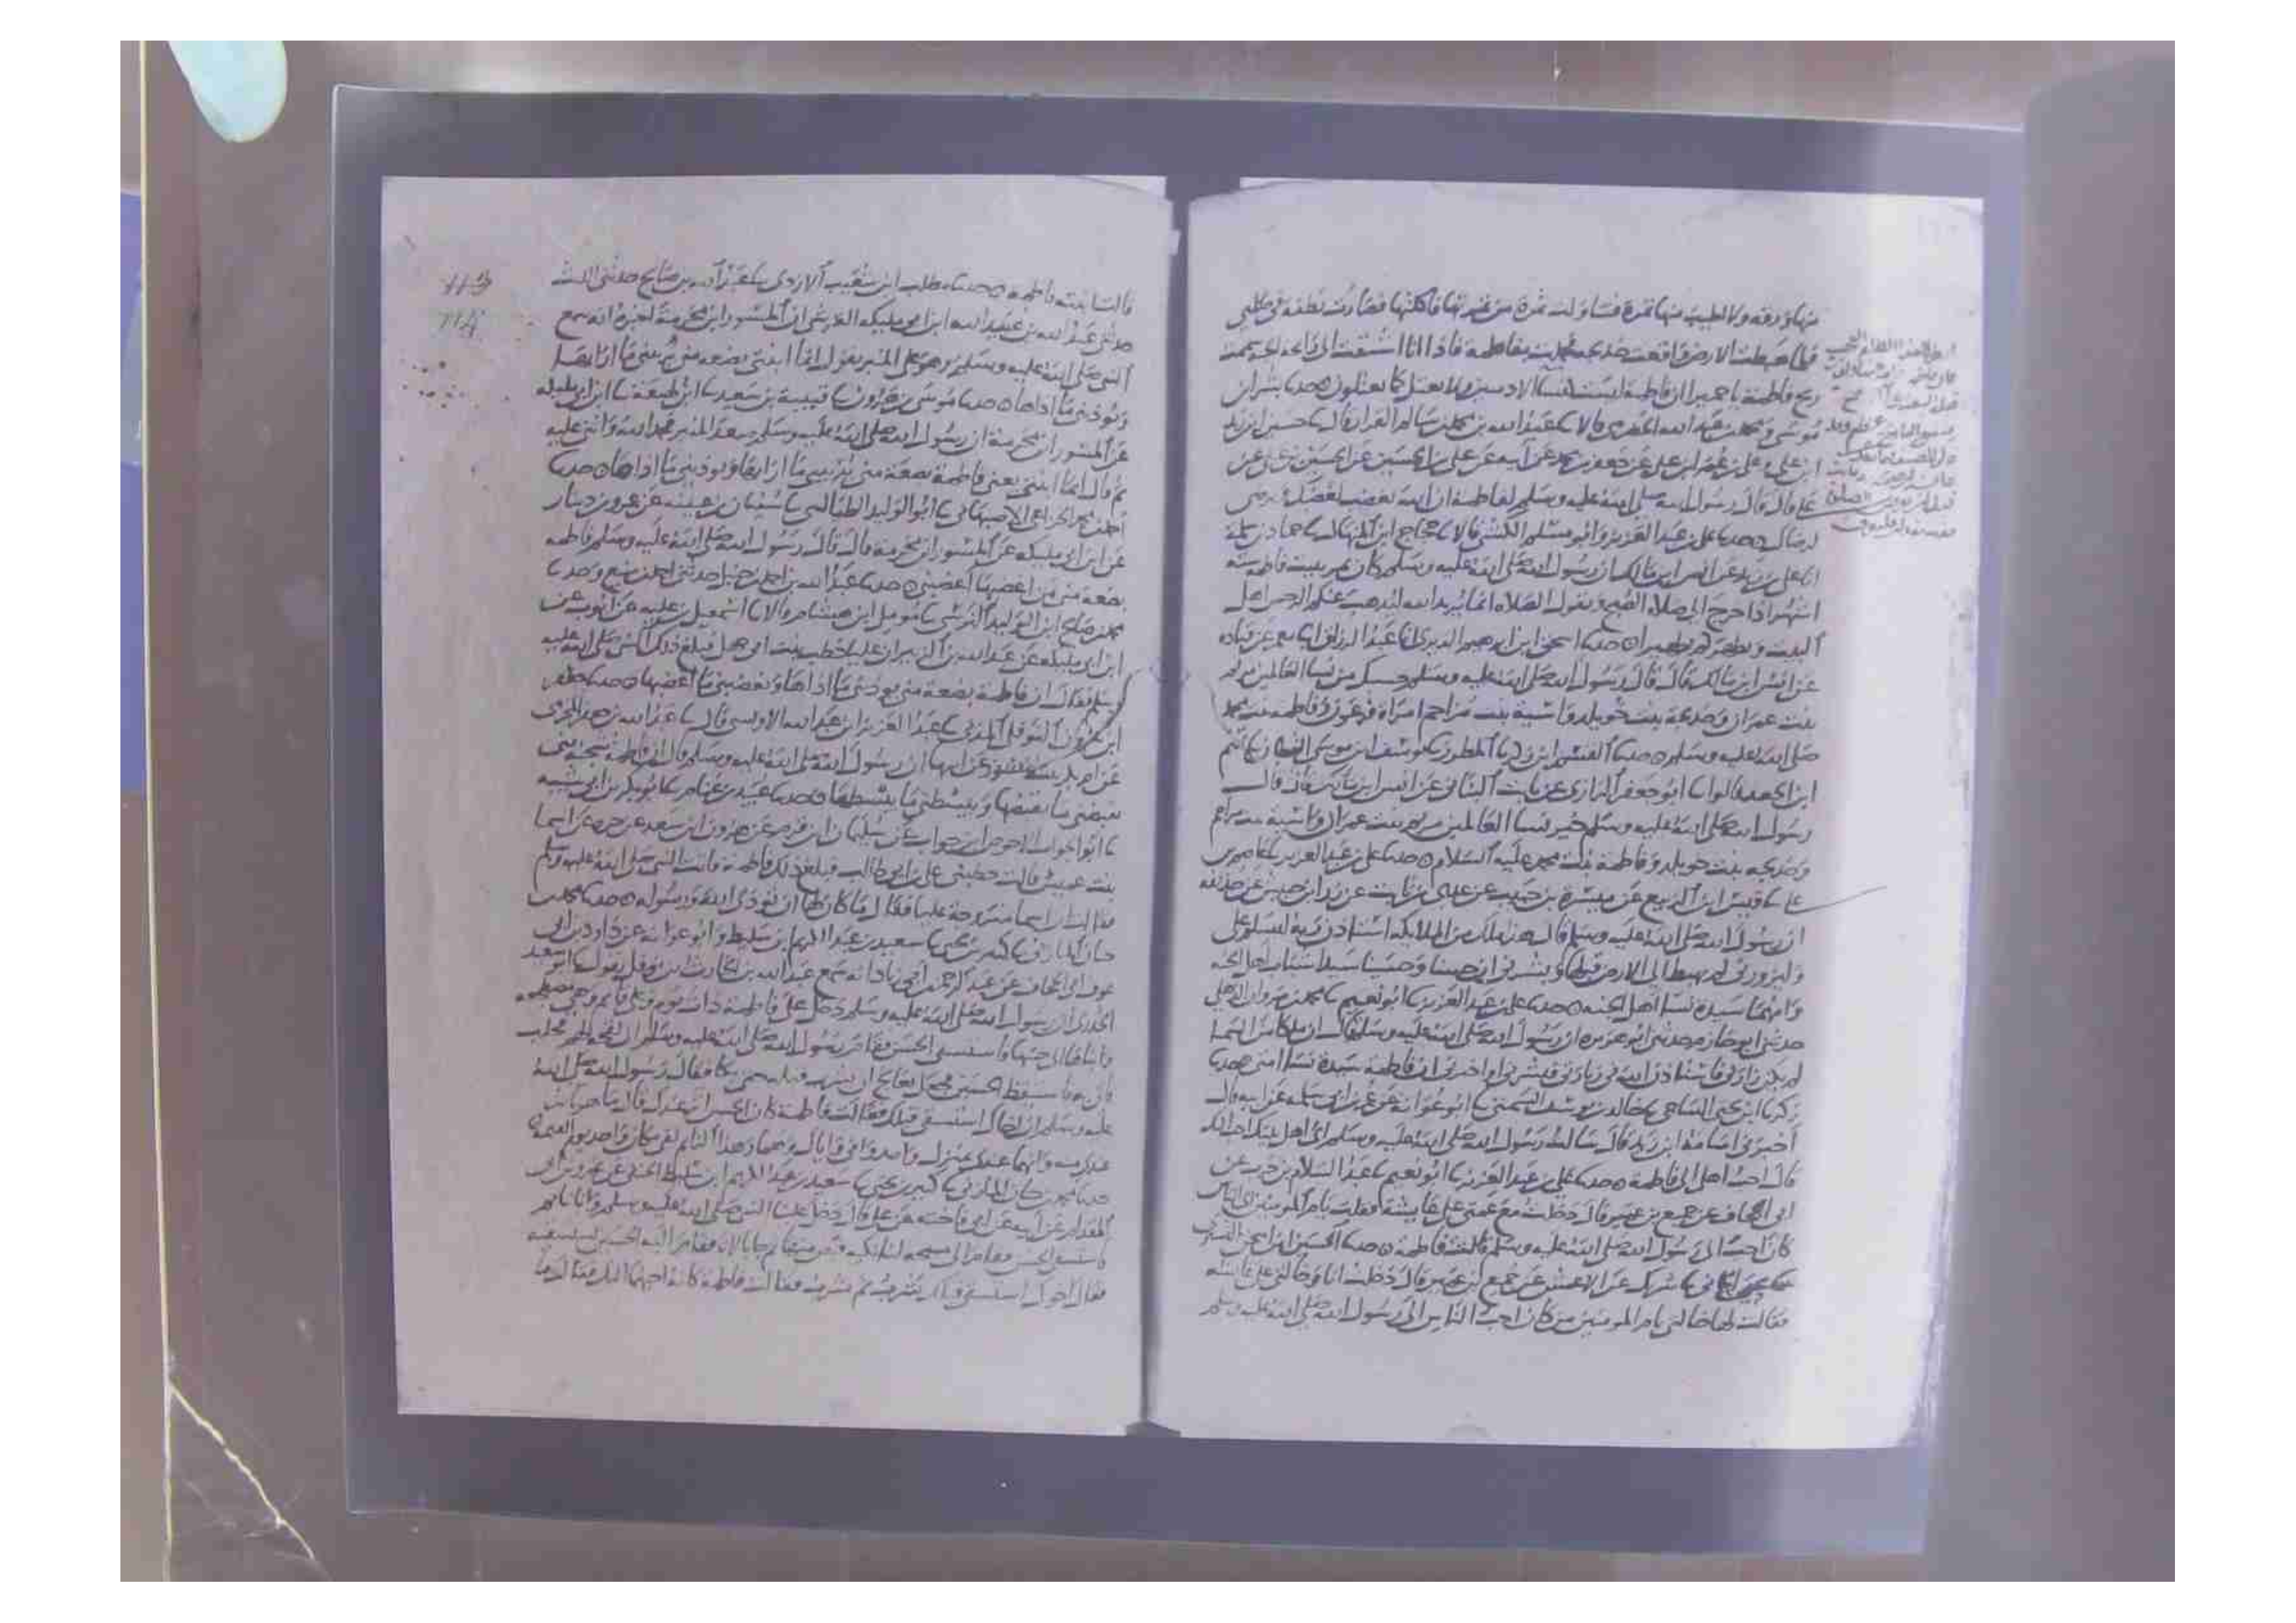 منها ورقه ولا اطيب منها ثمرة فتناولت ثمرة من ثمرتها فاكلتها فصارت نطفة في صلبي
فلما هبطت الارض واقعت خديجه فحملت بفاطمه فاذا انا اشتقت الى رائحة الجنة شممت
ريح فاطمة يا حميرا ان فاطمة ليست كنسا الادميين ولا تعتل كما يعتلون حدثنا بشر ابن
موسى ومحمد بن عبد الله الحضرمي قالا نا عبد الله بن محمد بن سالم القزاز قال نا حسين ابن زيد
ابن علي وعلي بن عمر ابن علي عن جعفر بن محمد عن ابيه عن علي بن الحسين عن الحسين بن علي عن
علي قال قال رسول الله صلى الله عليه وسلم لفاطمة ان الله يغضب لغضبك ويرضى
لرضاك حدثنا علي بن عبد العزيز وابو مسلم الكشي قالا نا حجاج ابن المنهال نا حماد بن سلمة
انا علي بن زيد عن انس ابن مالك ان رسول الله صلى الله عليه وسلم كان يمر ببيت فاطمة ستة
اشهر اذا خرج الى صلاة الصبح ويقول الصلاة انما يريد الله ليذهب عنكم الرجس اهل
البيت ويطهركم تطهيرا حدثنا اسحق ابن ابرهيم الدبري انا عبد الرزاق انا معمر عن قتادة
عن انس ابن مالك قال قال رسول الله صلى الله عليه وسلم حسبك من نسا العالمين مريم
بنت عمران وخديجة بنت خويلد واسية بنت مزاحم امراة فرعون وفاطمه بنت محمد
صلى الله عليه وسلم حدثنا القسم ابن زكريا المطرز نا يوسف ابن موسى القطان نا تميم
ابن الجعد قالوا نا ابو جعفر الرازي عن ثابت البناني عن انس ابن مالك قال قال
رسول الله صلى الله عليه وسلم خير نسا العالمين مريم بنت عمران واسية بنت مزاحم
وخديجه بنت خويلد وفاطمة بنت محمد عليه السلام حدثنا علي بن عبد العزيز نا عاصم بن
علي نا قيس ابن الربيع عن ميسرة بن حبيب عن عدي بن ثابت عن زر ابن حبيش عن حذيفه
ان رسول الله صلى الله عليه وسلم قال هذا ملك من الملائكة استاذن ربه ليسلم علي
وليزورني لم يهبط الى الارض قبلها وبشرني ان حسنا وحسينا سيدا شباب اهل الجنه
وامهما سيدة نسا اهل الجنه حدثنا علي بن عبد العزيز نا ابو نعيم نا محمد بن مروان الذهلي
حدثني ابو حازم حدثني ابو هريره ان رسول الله صلى الله عليه وسلم قال ان ملكا من السما
لم يكن زارني فاستاذن الله في زيارتي فبشرني او اخبرني ان فاطمة سيدة نسا امتي حدثنا
زكريا ابن يحيى الساجي نا خالد بن يوسف السمتي نا ابو عوانه عن عمر بن ابي سلمه عن ابيه قال
اخبرني اسامة ابن زيد قال سالت رسول الله صلى الله عليه وسلم اي اهل بيتك احب اليك
قال احب اهلي الي فاطمة حدثنا علي بن عبد العزيز نا ابو نعيم نا عبد السلام بن حرب عن
ابي الجحاف عن جميع بن عمير قال دخلت مع عمتي على عايشة فقلت يا ام المومنين اي الناس
كان احب الى رسول الله صلى الله عليه وسلم قالت فاطمة حدثنا الحسين ابن اسحق التستري
نا يحيى الحماني نا شريك عن الاعمش عن جميع بن عمير قال دخلت انا وخالتي على عايشه
فقالت لها خالتي يا ام المومنين من كان احب الناس الى رسول الله صلى الله عليه وسلم
قالت ابنته فاطمه حدثنا مطلب ابن شعيب الازدي نا عبد الله بن صالح حدثني الليث
حدثني عبد الله بن عبيد الله ابن ابي مليكه القرشي ان المسور ابن مخرمة اخبره انه سمع
النبي صلى الله عليه وسلم وهو على المنبر يقول انما ابنتي بضعه مني يريبني ما ارابها
ويوذيني ما اذاها حدثنا موسى بن هرون نا قتيبة بن سعيد نا ابن لهيعة نا ابن ابي مليكه
عن المسور ابن مخرمة ان رسول الله صلى الله عليه وسلم صعد المنبر فحمد الله واثنى عليه
ثم قال انما ابنتي يعني فاطمة بضعة مني يريبني ما ارابها ويوذيني ما اذاها حدثنا
احمد بن محمد الخزاعي الاصبهاني نا ابو الوليد الطيالسي نا سفيان بن عيينه عن عمرو بن دينار
عن ابن ابي مليكه عن المسور ابن مخرمة قال قال رسول الله صلى الله عليه وسلم فاطمه
بضعة مني من اغضبها اغضبني حدثنا عبد الله بن احمد بن حنبل حدثني احمد بن منيع وحدثنا
محمد بن صالح ابن الوليد النرسي نا مومل ابن هشام قالا نا اسمعيل بن عليه عن ايوب عن
ابن ابي مليكه عن عبد الله بن الزبير ان عليا خطب بنت ابي جهل فبلغ ذلك النبي صلى الله عليه
وسلم فقال ان فاطمة بضعة مني يوذيني ما اذاها ويغضبني ما اغضبها حدثنا جعفر
ابن هرون النوفلي المدني نا عبد العزيز ابن عبد الله الاويسي قال نا عبد الله بن جعفر المخرمي
عن ام بكر بنت المسور عن ابيها ان رسول الله صلى الله عليه وسلم قال ان فاطمة شجنة مني
يقبضني ما يقبضها ويبسطني ما يبسطها حدثنا عبيد بن غنام نا ابو بكر بن ابي شيبه
نا ابو الجواب الاحوص ابن جواب عن سليمان ابن قرم عن هرون ابن سعد عن اسما
بنت عميس قالت خطبني علي بن ابي طالب فبلغ ذلك فاطمة فاتت النبي صلى الله عليه وسلم
فقالت ان اسما متزوجة عليا فقال ما كان لها ان توذي الله ورسوله حدثنا محمد بن
حيان المازني نا كثير بن يحيى نا سعيد بن عبد الكريم ابن سليط وابو عوانه عن داود بن ابي
عوف ابي الجحاف عن عبد الرحمن ابن ابي زياد انه سمع عبد الله بن الحارث ابن نوفل يقول نا ابو سعيد
الخدري ان رسول الله صلى الله عليه وسلم دخل على فاطمة ذات يوم وعلي نايم وهي مضطجعه
وابناها الى جنبها فاستسقى الحسن فقام رسول الله صلى الله عليه وسلم الى لقحه لهم فحلب
فاتى به فاستيقظ الحسين فجعل يعالج ان يشرب قبله حتى بكا فقال رسول الله صلى الله
عليه وسلم ان اخاك استسقى قبلك فقالت فاطمة كان الحسن اثر عندك قال ما هو باثر
عندي منه وانهما عندي بمنزلة واحدة واني واياك وهما وهذا النايم لفي مكان واحد يوم القيمه
حدثنا محمد بن حيان المازني نا كثير بن يحيى نا سعيد بن عبد الكريم ابن سليط الحنفي عن عمرو بن ابي
المقدام عن ابيه عن ابي فاخته عن علي قال دخل علينا النبي صلى الله عليه وسلم وانا نايم
فقال اخوك استسقى قبلك يشرب ثم تشرب فقالت فاطمة كانه احبهما اليك فقال ما